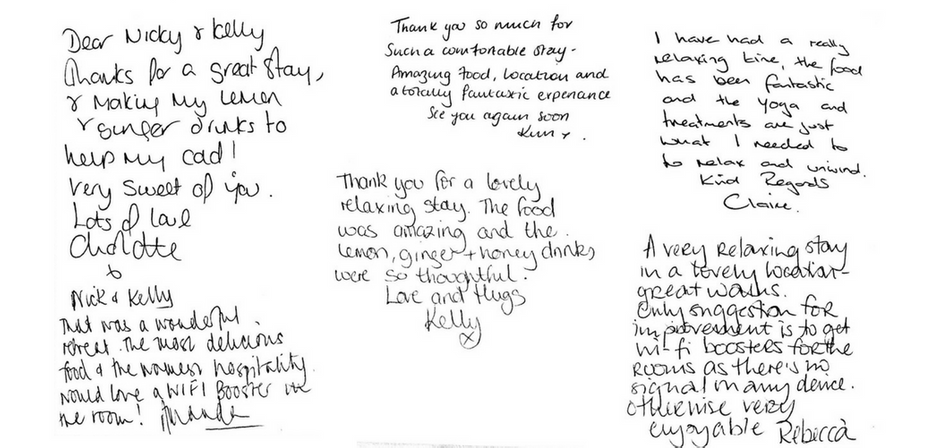 Dear Nicky & Kelly
Thanks for a great stay,
& making my lemon
& ginger drinks to
help my cold!
very sweet of you.
Lots of love
Charlotte
x
Nick & Kelly
That was a wonderful
retreat. The most delicious
food & the warmest hospitality.
would love a WIFI Booster in
the room! Amanda
Thank you so much for
Such a comfortable stay -
Amazing food, location and
a totally fantastic experience
See you again soon
Kim x.
Thank you for a lovely
relaxing stay. The food
was amazing and the
lemon, ginger + honey drinks
were so thoughtful.
Love and Hugs
Kelly
x
I have had a really
relaxing time, the food
has been fantastic
and the Yoga and
treatments are just
what I needed to
to relax and unwind.
Kind Regards
Claire.
A very relaxing stay
in a lovely location -
great walks.
Only suggestion for
improvement is to get
wi-fi boosters for the
rooms as there's no
signal in any
otherwise very
enjoyable Rebecca